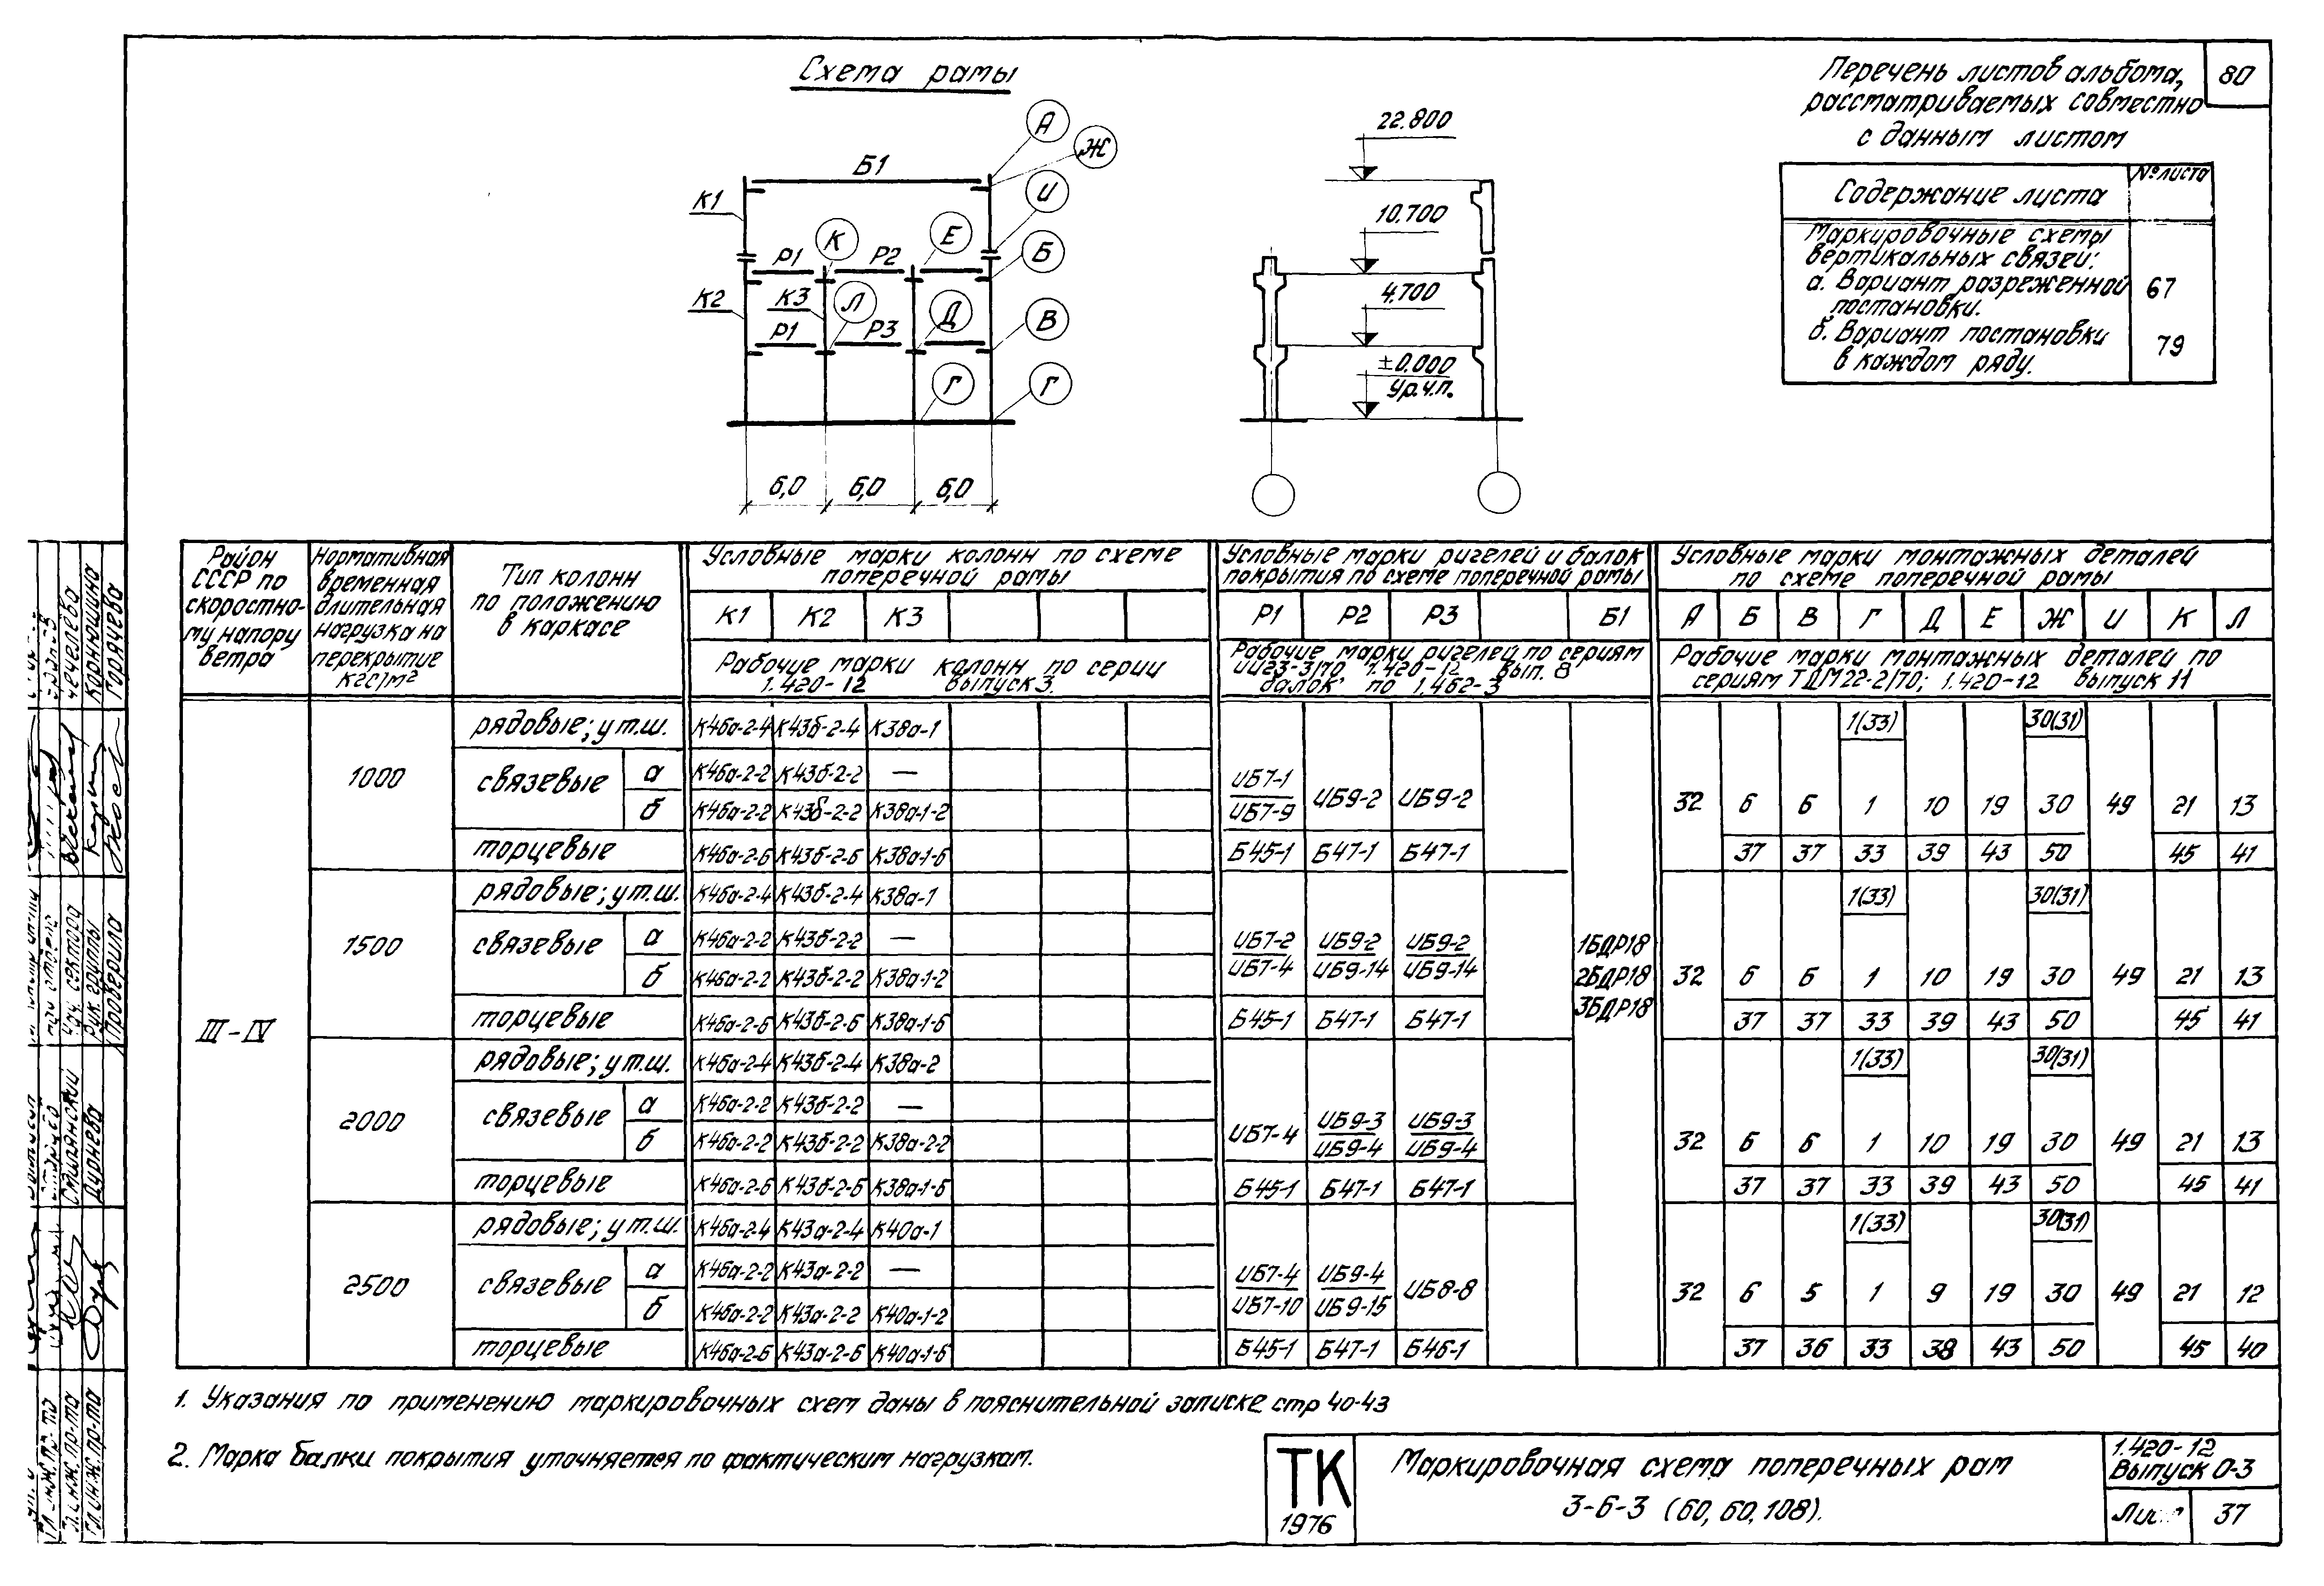 Схема рамы
Перечень листов альбома,
рассматриваемых совместно
с данным листом
80
Содержание листа
№ листа
Маркировочные схемы
вертикальных связей:
а. Вариант разреженной
постановки.
67
б. Вариант постановки
в каждом ряду.
79
А
Ж
И
Б1
К1
К
Е
Б
Р1
Р2
К2
К3
Л
Д
В
Р1
Р3
Г
Г
6,0
6,0
6,0
22.800
10.700
4.700
±0.000
Ур.ч.п.
Район
СССР по
скоростно-
му напору
ветра
Нормативная
временная
длительная
нагрузка на
перекрытие
кгс/м²
Тип колонн
по положению
в каркасе
Условные марки колонн по схеме
поперечной рамы
К1 К2 К3
Рабочие марки колонн по серии
1.420-12 выпуск 3.
Условные марки ригелей и балок
покрытия по схеме поперечной рамы
Р1 Р2 Р3 Б1
Рабочие марки ригелей по сериям
ИИ23-3/70 1.420-12 вып. 8
балок по 1.462-3
Условные марки монтажных деталей
по схеме поперечной рамы
А Б В Г Д Е Ж И К Л
Рабочие марки монтажных деталей по
сериям ТДМ22-2/70; 1.420-12 выпуск 11
III-IV
1БДР18
2БДР18
3БДР18
1000
рядовые; у т.ш. К46а-2-4 К43б-2-4 К38а-1 1(33) 30(31)
связевые а К46а-2-2 К43б-2-2 —
ИБ7-1
ИБ7-9 ИБ9-2 ИБ9-2 32 6 6 1 10 19 30 49 21 13
б К46а-2-2 К43б-2-2 К38а-1-2
торцевые К46а-2-6 К43б-2-6 К38а-1-6 Б45-1 Б47-1 Б47-1 37 37 33 39 43 50 45 41
1500
рядовые; у т.ш. К46а-2-4 К43б-2-4 К38а-1 1(33) 30(31)
связевые а К46а-2-2 К43б-2-2 — ИБ7-2 ИБ9-2 ИБ9-2
ИБ7-4 ИБ9-14 ИБ9-14
б К46а-2-2 К43б-2-2 К38а-1-2 32 6 6 1 10 19 30 49 21 13
торцевые К46а-2-6 К43б-2-6 К38а-1-6 Б45-1 Б47-1 Б47-1 37 37 33 39 43 50 45 41
2000
рядовые; у т.ш. К46а-2-4 К43б-2-4 К38а-2 1(33) 30(31)
связевые а К46а-2-2 К43б-2-2 — ИБ9-3 ИБ9-3
ИБ7-4 ИБ9-4 ИБ9-4
б К46а-2-2 К43б-2-2 К38а-2-2 32 6 6 1 10 19 30 49 21 13
торцевые К46а-2-6 К43б-2-6 К38а-1-6 Б45-1 Б47-1 Б47-1 37 37 33 39 43 50 45 41
2500
рядовые; у т.ш. К46а-2-4 К43а-2-4 К40а-1 1(33) 30(31)
связевые а К46а-2-2 К43а-2-2 — ИБ7-4 ИБ9-4 ИБ8-8
ИБ7-10 ИБ9-15
б К46а-2-2 К43а-2-2 К40а-1-2 32 6 5 1 9 19 30 49 21 12
торцевые К46а-2-6 К43а-2-6 К40а-1-6 Б45-1 Б47-1 Б46-1 37 36 33 38 43 50 45 40
1. Указания по применению маркировочных схем даны в пояснительной записке стр 40-43
2. Марка балки покрытия уточняется по фактическим нагрузкам.
ТК
1976
Маркировочная схема поперечных рам
3-6-3 (60, 60, 108).
1.420-12
Выпуск 0-3
Лист 37
Чечелева
Корнюшина
Горячева
Нач. сектора
Рук. группы
Проверила
Смилянский
Дурнева
Гл. инж. пр-та